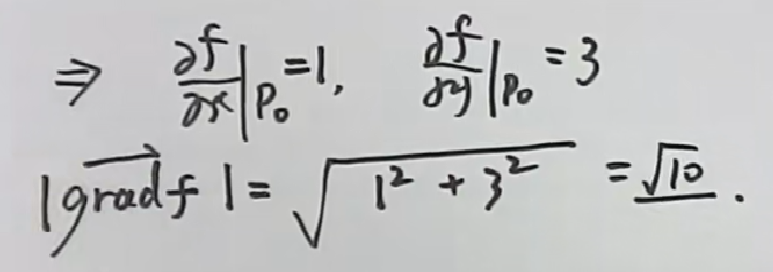 ⇒ ∂f/∂x|P₀ = 1, ∂f/∂y|P₀ = 3
|grad f⃗| = √(1² + 3²) = √10.